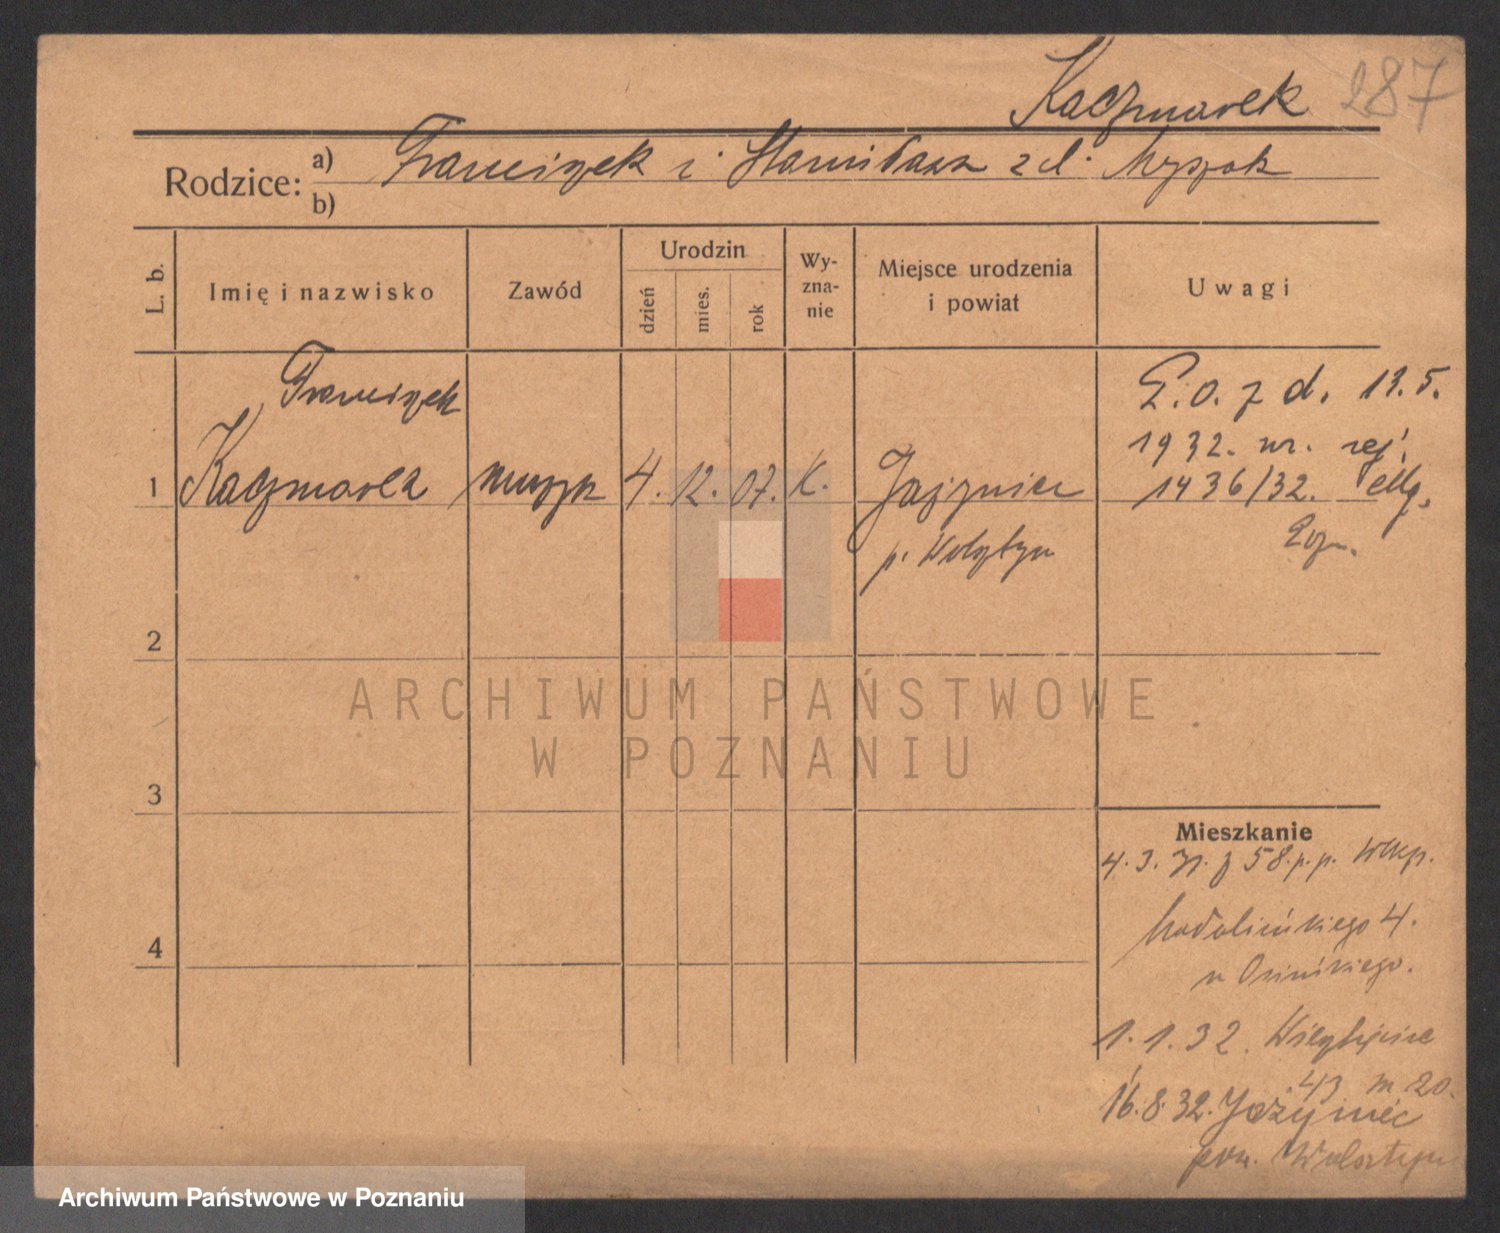 Kaczmarek 287
Rodzice: a) Franciszek i Stanisława z d.
b)
L. b.
Imię i nazwisko
Zawód
Urodzin
dzień
mies.
rok
Wy-
zna-
nie
Miejsce urodzenia
i powiat
Uwagi
1
Franciszek
Kaczmarek
muzyk
4.
12.
07.
K.
Jażyniec
p. Wolsztyn
D.O. z d. 13.5.
1932. nr. rej.
1436/32. Mg.
Pozn.
2
3
4
Mieszkanie
4.3. z 58. p.p. Wlkp.
Madalińskiego 4.
u Osińskiego.
1.1.32.
43 m 20.
16.8.32. Jażyniec
pow. Wolsztyn
ARCHIWUM PAŃSTWOWE
W POZNANIU
Archiwum Państwowe w Poznaniu